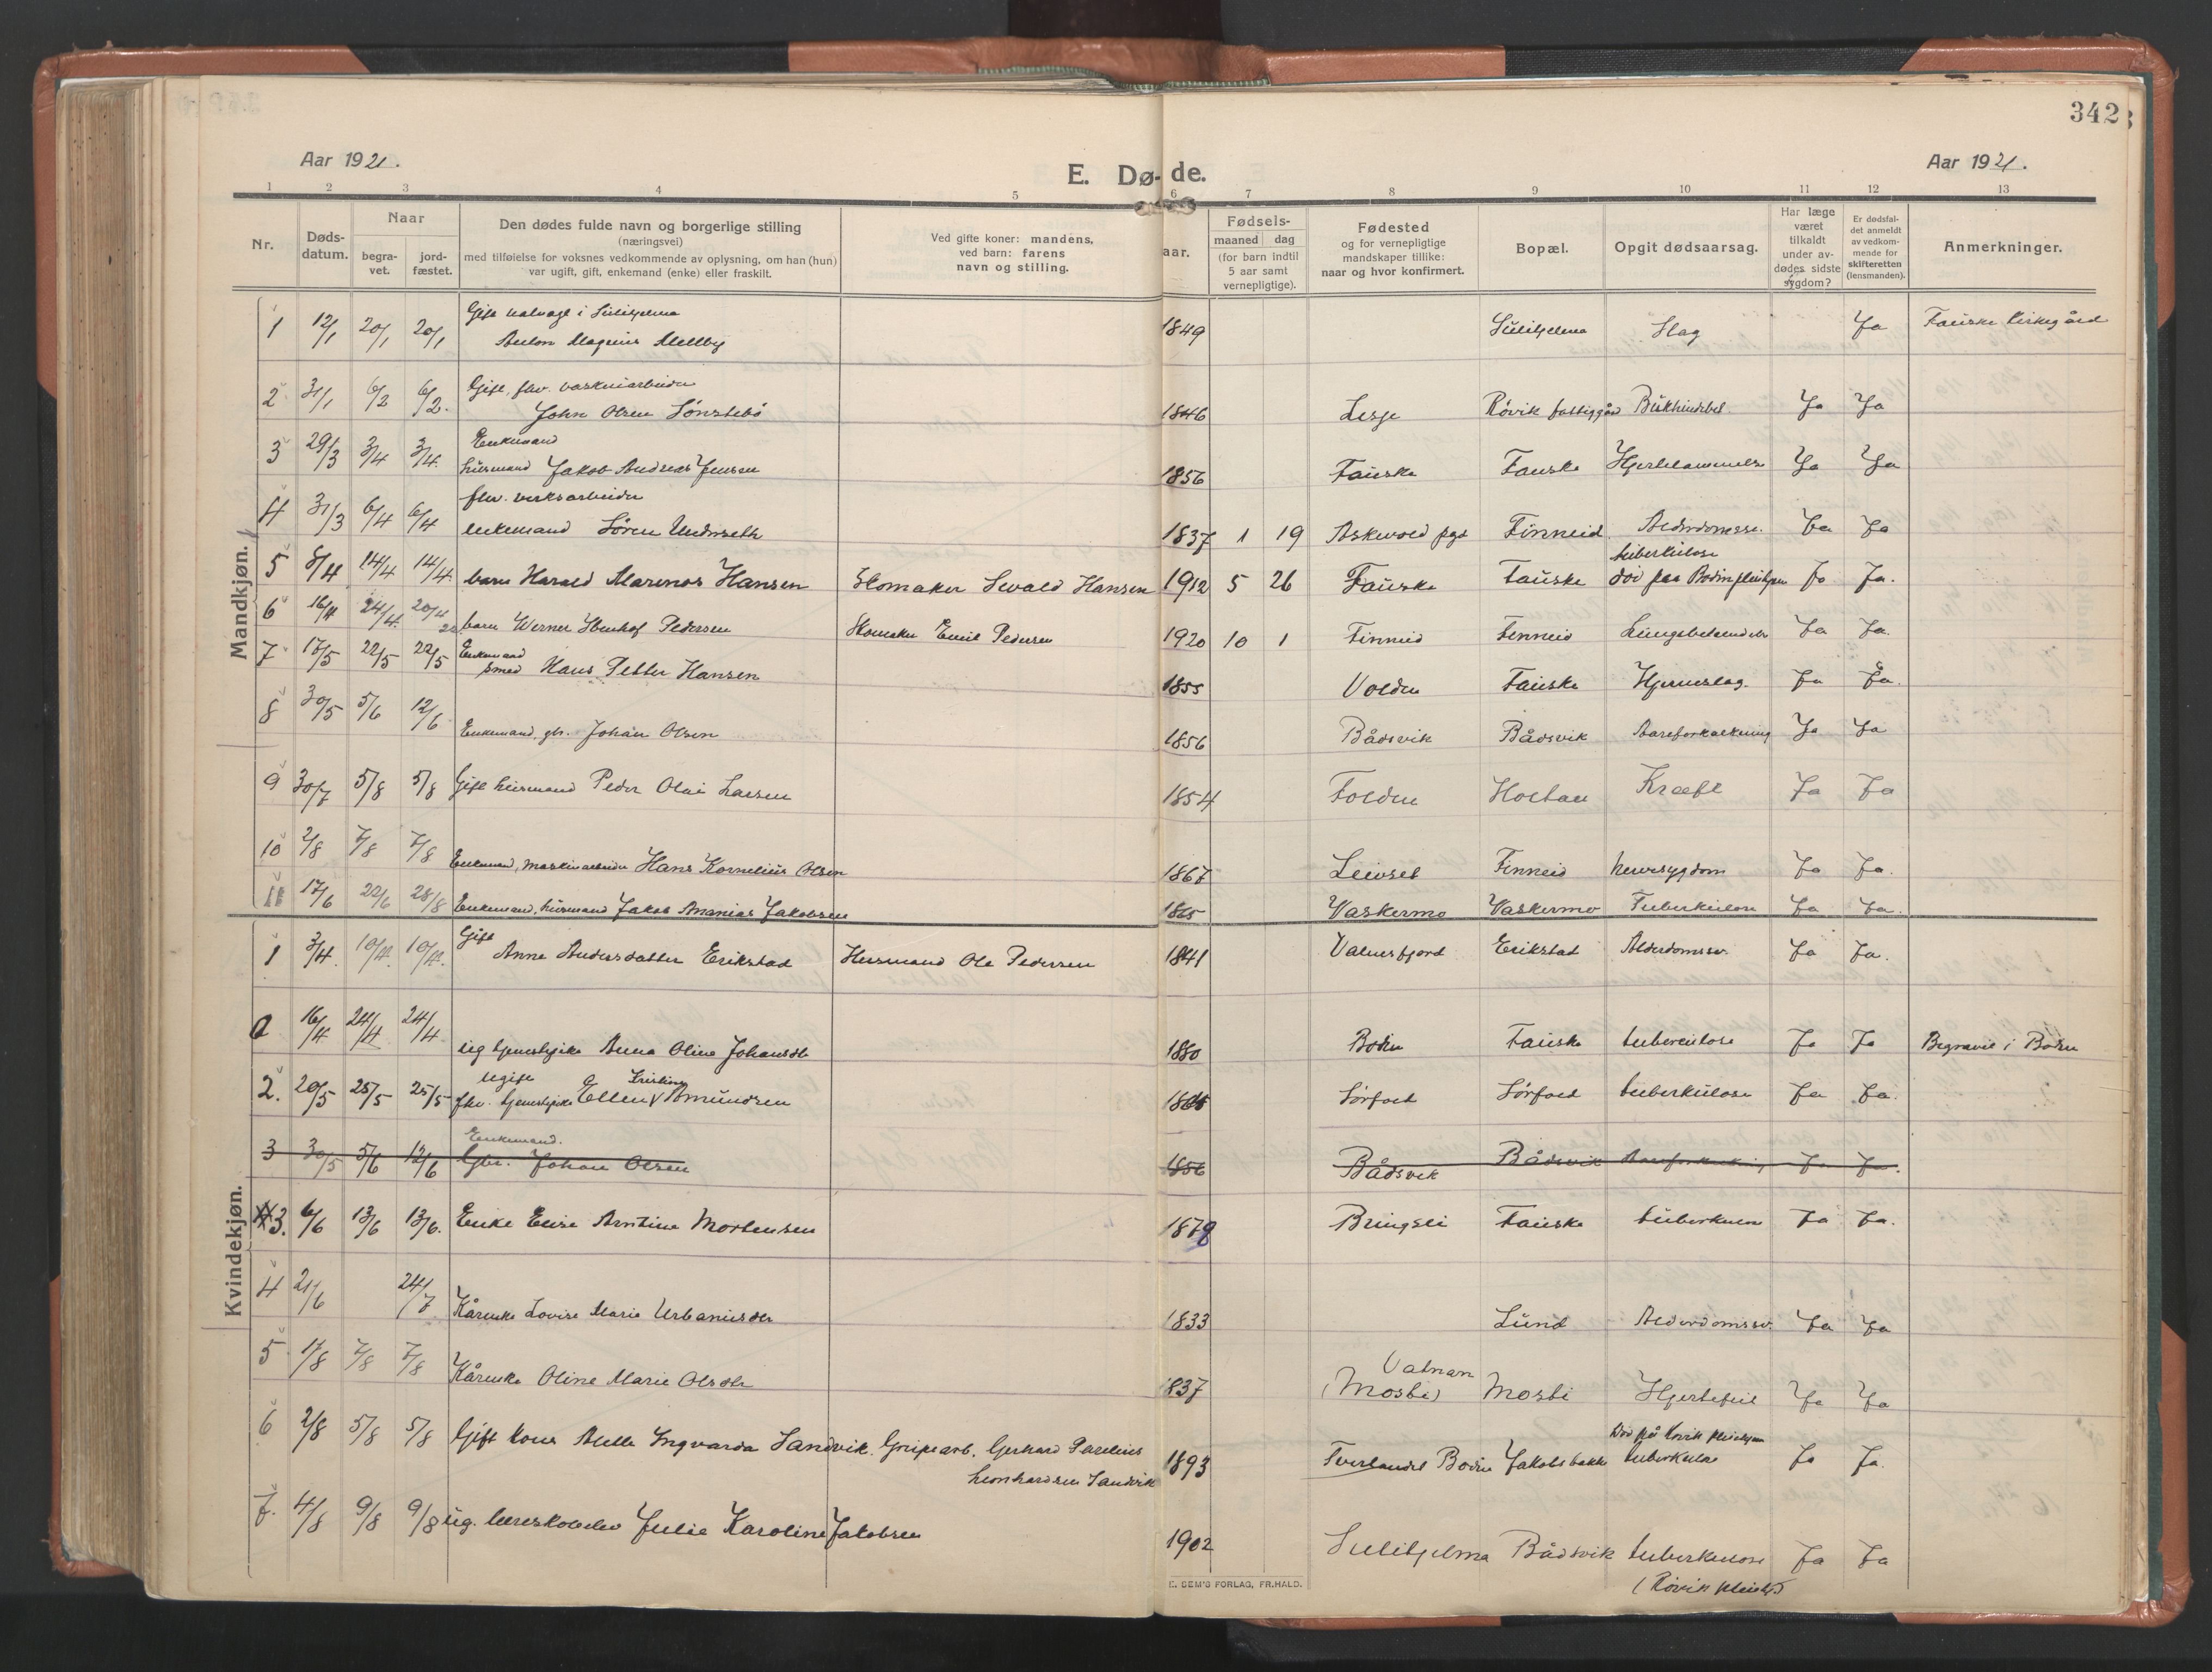 342
Aar 1921.
E. Dø- de.
Aar 1921.
1 2 3 4 5 6 7 8 9 10 11 12 13
Nr.
Døds-
datum.
Naar
begra-
vet.
jord-
fæstet.
Den dødes fulde navn og borgerlige stilling
(næringsvei)
med tilføielse for voksnes vedkommende av oplysning, om han (hun)
var ugift, gift, enkemand (enke) eller fraskilt.
Ved gifte koner: mandens,
ved barn: farens
navn og stilling.
aar.
Fødsels-
maaned dag
(for barn indtil
5 aar samt
vernepligtige).
Fødested
og for vernepligtige
mandskaper tillike:
naar og hvor konfirmert.
Bopæl.
Opgit dødsaarsag.
Har læge
været
tilkaldt
under av-
dødes sidste
sygdom?
Er dødsfal-
det anmeldt
av vedkom-
mende for
skifteretten
(lensmanden).
Anmerkninger.
Mandkjøn.
Gift i Sulitjelma
1 12/1 20/1 20/1 Anton Magnus Mellby 1849 Sulitjelma Slag Ja Fauske kirkegård
Gift, fhv.
2 31/1 6/2 6/2. John Olsen Sønstebö 1846 Lesje Røvik Ja Ja
Enkemand
3 29/3 3/4 3/4. husmand Jakob Andreas Jensen 1856 Fauske Fauske Ja Ja
fhv. verksarbeider
4 31/3 6/4 6/4 enkemand Sören 1837 1 19 Askevold pgd Finneid Alderdomssv. Ja Ja
tuberkulose
5 8/4 14/4 14/4. barn Harald Marinos Hansen Skomaker Sevald Hansen 1912 5 26 Fauske Fauske död paa Bodin pleiehjem Ja Ja.
6 16/4 24/4. barn Werner Pedersen Skomaker Emil Pedersen 1920 10 1 Finneid Finneid Lungebetændelse Ja Ja.
Enkemand
7 17/5 22/5 22/5 smed Hans Petter Hansen 1855 Volden Fauske Hjerneslag. Ja Ja.
8 30/5 5/6 12/6 Enkemand, gbr. Johan Olsen 1856 Bådsvik Bådsvik Aareforkalkning Ja Ja
9 30/7 5/8 5/8 Gift husmand Peder Olai Larsen 1854 Folden Holtan Kræft Ja Ja
10 2/8 7/8 7/8 Enkemand, maskinarbeider Hans Kornelius Olsen 1867 Leivset Finneid Ja Ja.
11 17/6 22/6 28/8 Enkemand, husmand Jakob Ananias Jakobsen 1865 Vaskermo Vaskermo Tuberkulose Ja Ja.
Kvindekjøn.
Gift
1 3/4. 10/4. 10/4. Anne Andersdatter Erikstad Husmand Ole Pedersen 1841 Valnesfjord Erikstad Alderdomssv. Ja Ja.
16/4 24/4 24/4 ug tjenestepike Anna Oline Johansdtr 1880 Bodin Fauske tuberkulose Ja Ja Begravet i Bodin
ugift Kristine
2. 20/5 25/5 25/5 fhv. tjenestepike Ellen Amundsen Sörfold Sörfold tuberkulose Ja Ja.
Enkemand.
3 30/5 5/6 12/6 Gbr. Johan Olsen 1856 Bådsvik Bådsvik Aareforkalkning Ja Ja.
3. 6/6 13/6 13/6. Enke Elise Arntine Mortensen 1879 Bringsli Fauske tuberkulose Ja Ja.
4 21/6 24/7 Kårenke Lovise Marie Urbanusdtr 1833 Lund Alderdomssv. Ja Ja
Vatnan
5 1/8 7/8 7/8 Kårenke Oline Marie Olsdtr 1837 (Mosti) Mosti Hjertefeil Ja Ja
Död på Rövik pleiehjem
6 2/8 5/8 5/8 Gift kone Alette Ingvarda Sandvik. Grubearb. Gerhard Parelius 1893 Tverlandet Bodin Jakobsbakken tuberkulose Ja Ja.
Leonhardsen Sandvik
7. 4/8 9/8 9/8 ug. læreskoleelev Julie Karoline Jakobsen 1902 Sulitjelma Bådsvik tuberkulose Ja Ja
(Rövik pleiehj.)
E. SEM'S FORLAG, FR.HALD.